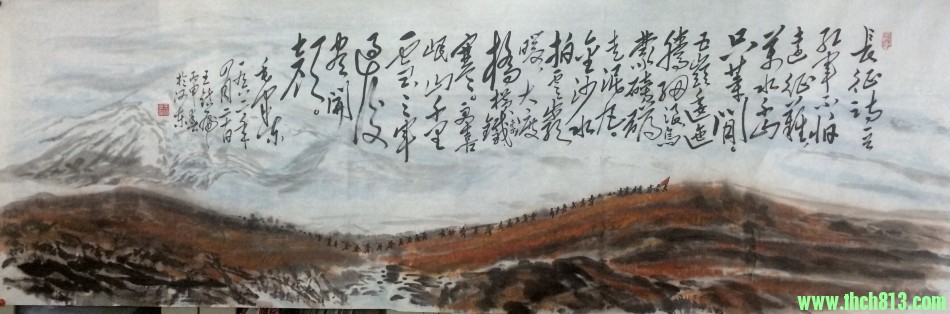 長征詩
红軍不怕
遠征難
萬水千山
只等閒
五嶺逶迤
騰細浪烏
蒙磅礴
走泥丸
金沙水
拍雲崖
暖大渡
橋横鐵索
寒更喜
岷山千里
雪三軍
過後
盡開
顏
毛澤東
丙申
www.thch813.com